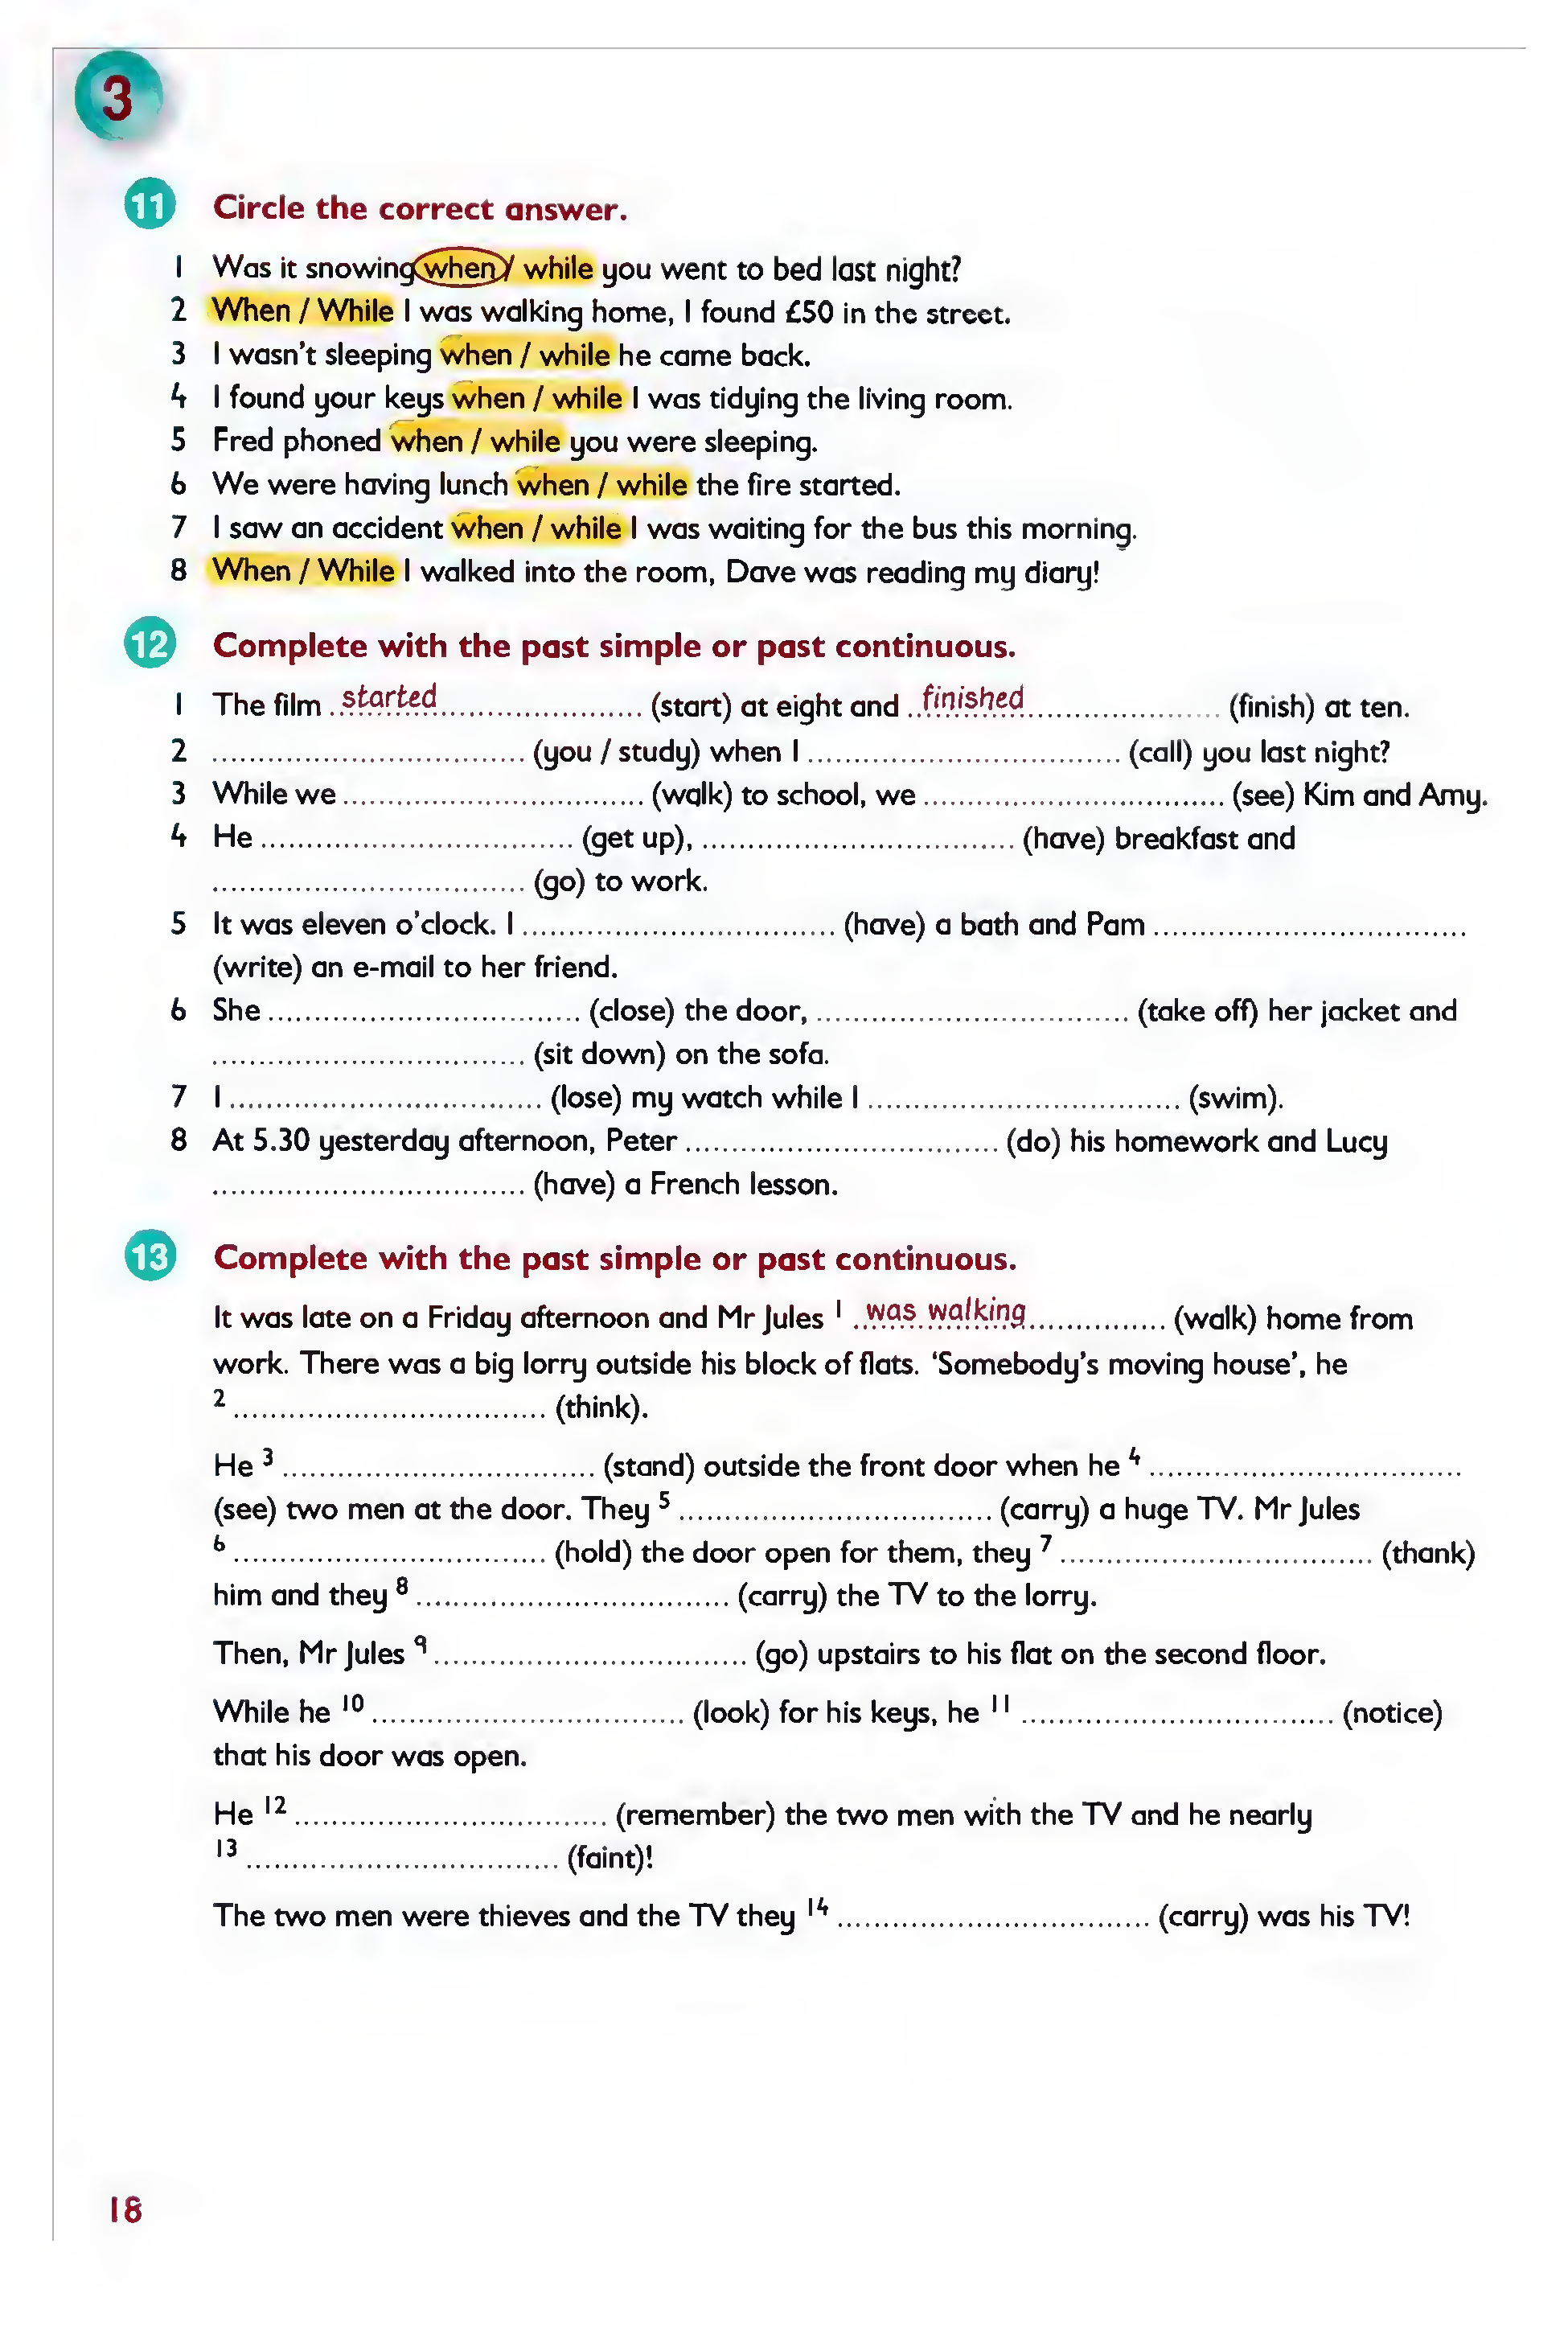 3
11 Circle the correct answer.
1 Was it snowing when / while you went to bed last night?
2 When / While I was walking home, I found £50 in the street.
3 I wasn't sleeping when / while he came back.
4 I found your keys when / while I was tidying the living room.
5 Fred phoned when / while you were sleeping.
6 We were having lunch when / while the fire started.
7 I saw an accident when / while I was waiting for the bus this morning.
8 When / While I walked into the room, Dave was reading my diary!
12 Complete with the past simple or past continuous.
1 The film started (start) at eight and finished (finish) at ten.
2 .................................. (you / study) when I .................................. (call) you last night?
3 While we .................................. (walk) to school, we .................................. (see) Kim and Amy.
4 He .................................. (get up), .................................. (have) breakfast and
.................................. (go) to work.
5 It was eleven o'clock. I .................................. (have) a bath and Pam ..................................
(write) an e-mail to her friend.
6 She .................................. (close) the door, .................................. (take off) her jacket and
.................................. (sit down) on the sofa.
7 I .................................. (lose) my watch while I .................................. (swim).
8 At 5.30 yesterday afternoon, Peter .................................. (do) his homework and Lucy
.................................. (have) a French lesson.
13 Complete with the past simple or past continuous.
It was late on a Friday afternoon and Mr Jules 1 was walking (walk) home from
work. There was a big lorry outside his block of flats. 'Somebody's moving house', he
2 .................................. (think).
He 3 .................................. (stand) outside the front door when he 4 ..................................
(see) two men at the door. They 5 .................................. (carry) a huge TV. Mr Jules
6 .................................. (hold) the door open for them, they 7 .................................. (thank)
him and they 8 .................................. (carry) the TV to the lorry.
Then, Mr Jules 9 .................................. (go) upstairs to his flat on the second floor.
While he 10 .................................. (look) for his keys, he 11 .................................. (notice)
that his door was open.
He 12 .................................. (remember) the two men with the TV and he nearly
13 .................................. (faint)!
The two men were thieves and the TV they 14 .................................. (carry) was his TV!
18